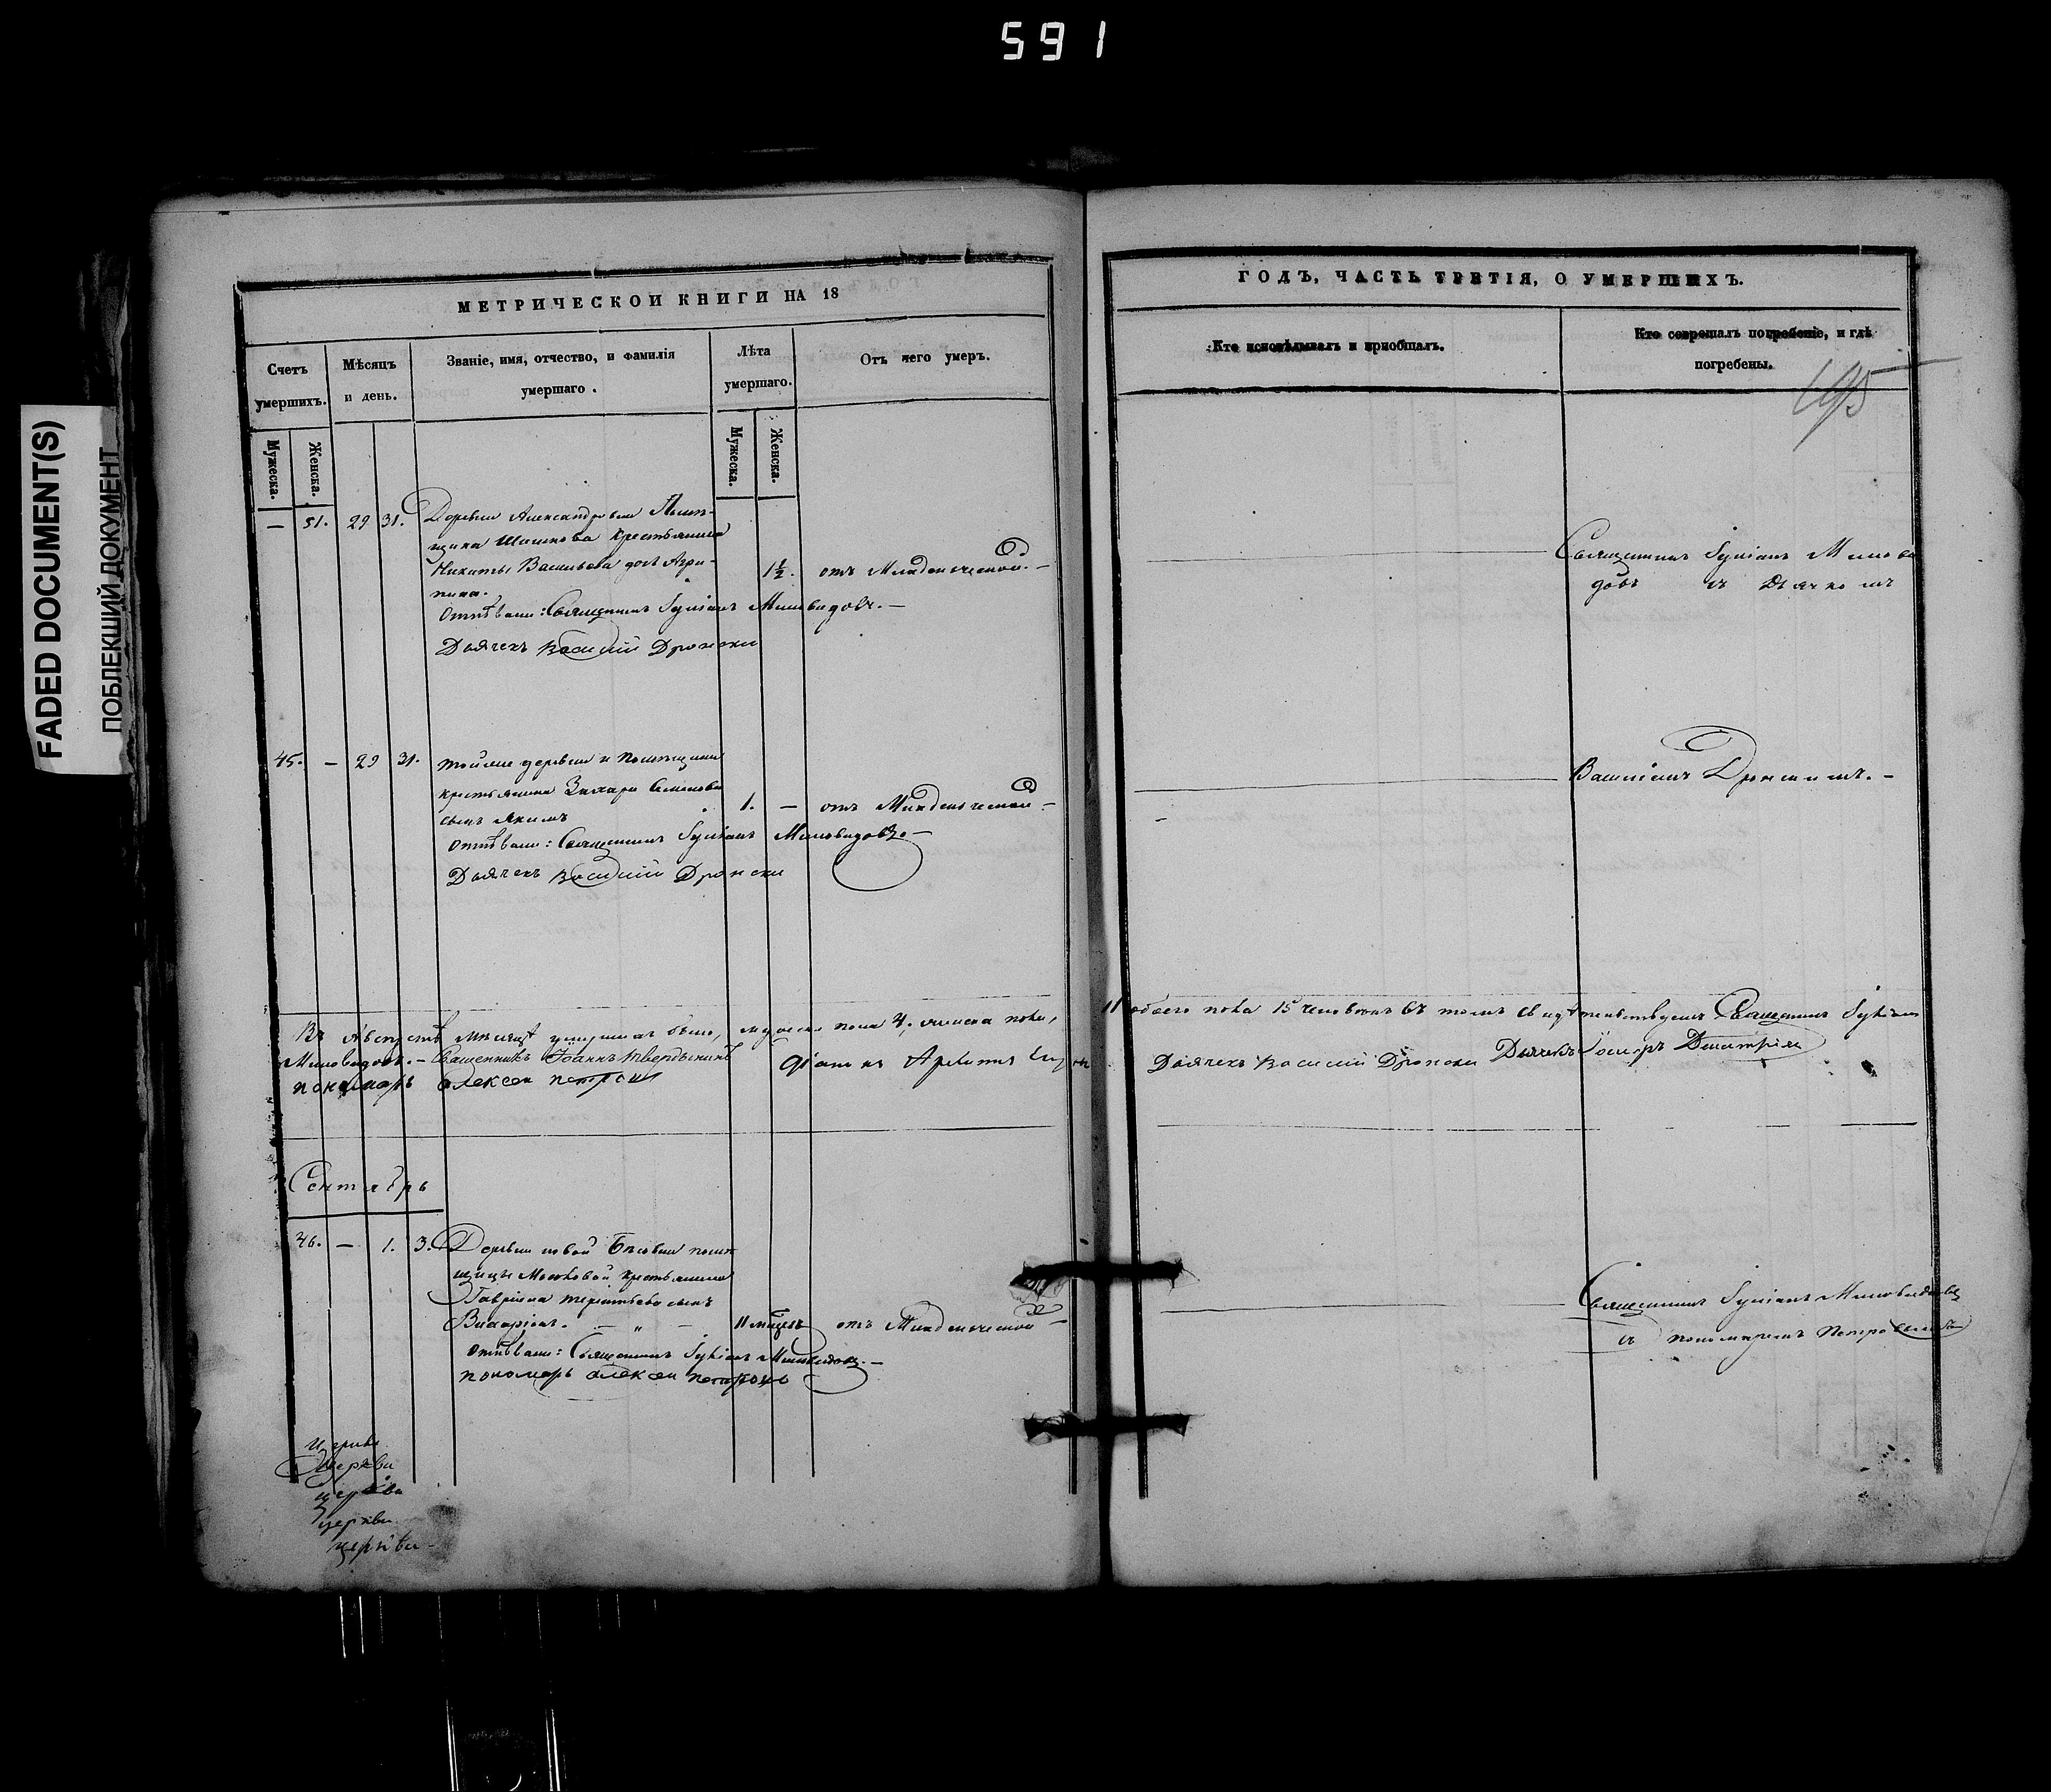 591
FADED DOCUMENT(S)
ПОБЛЕКШИЙ ДОКУМЕНТ
МЕТРИЧЕСКОЙ КНИГИ НА 18
Счетъ умершихъ.
Мужеска.
Женска.
Мѣсяцъ и день.
Званіе, имя, отчество, и фамилія
умершаго.
Лѣта
умершаго.
Мужеска.
Женска.
Отъ чего умеръ.
— 51. 29 31. Деревни Александровки Помѣ-
щика Шишкова крестьянина
Никиты Васильева дочь Агри-
пина.
1½. отъ Младенческой. —
Отпѣвали: Священникъ Іуліанъ Миловидовъ. —
Дьячекъ Василій Дронски
45. — 29 31. тойже деревни и помѣщика
крестьянина Захара Семенова
сынъ Якимъ
1. — отъ Младенческой —
отпѣвали: Священникъ Іуліанъ Миловидовъ —
Дьячекъ Василій Дронски
Въ Августѣ мѣсяцѣ умершихъ было, мужеска пола 4, женска пола,
Миловидовъ. — Священникъ Іоаннъ Твердынинъ
пономарь Алексей Петровъ
Сентябрь
46. — 1. 3. Деревни новой помѣ-
щицы крестьянина
Гавріила Терентьева сынъ
11 мѣсяцъ отъ Младенческой —
отпѣвали: Священникъ Іуліанъ Миловидовъ. —
пономарь Алексей Петровъ
церкви
Церкви
церкви
церкви
церкви
ГОДЪ, ЧАСТЬ ТРЕТІЯ, О УМЕРШИХЪ.
Кто исповѣдывалъ и пріобщалъ.
Кто совершалъ погребеніе, и гдѣ
погребены.
195
Священникъ Іуліанъ Милови
довъ съ Дьячкомъ
Василіемъ Дронскимъ. —
11 обоего пола 15 человѣкъ въ томъ свидѣтельствуемъ Священникъ Іуліанъ
Дьячекъ Василій Дронски Дьячекъ
Священникъ Іуліанъ Миловидовъ
съ пономаремъ Петровымъ